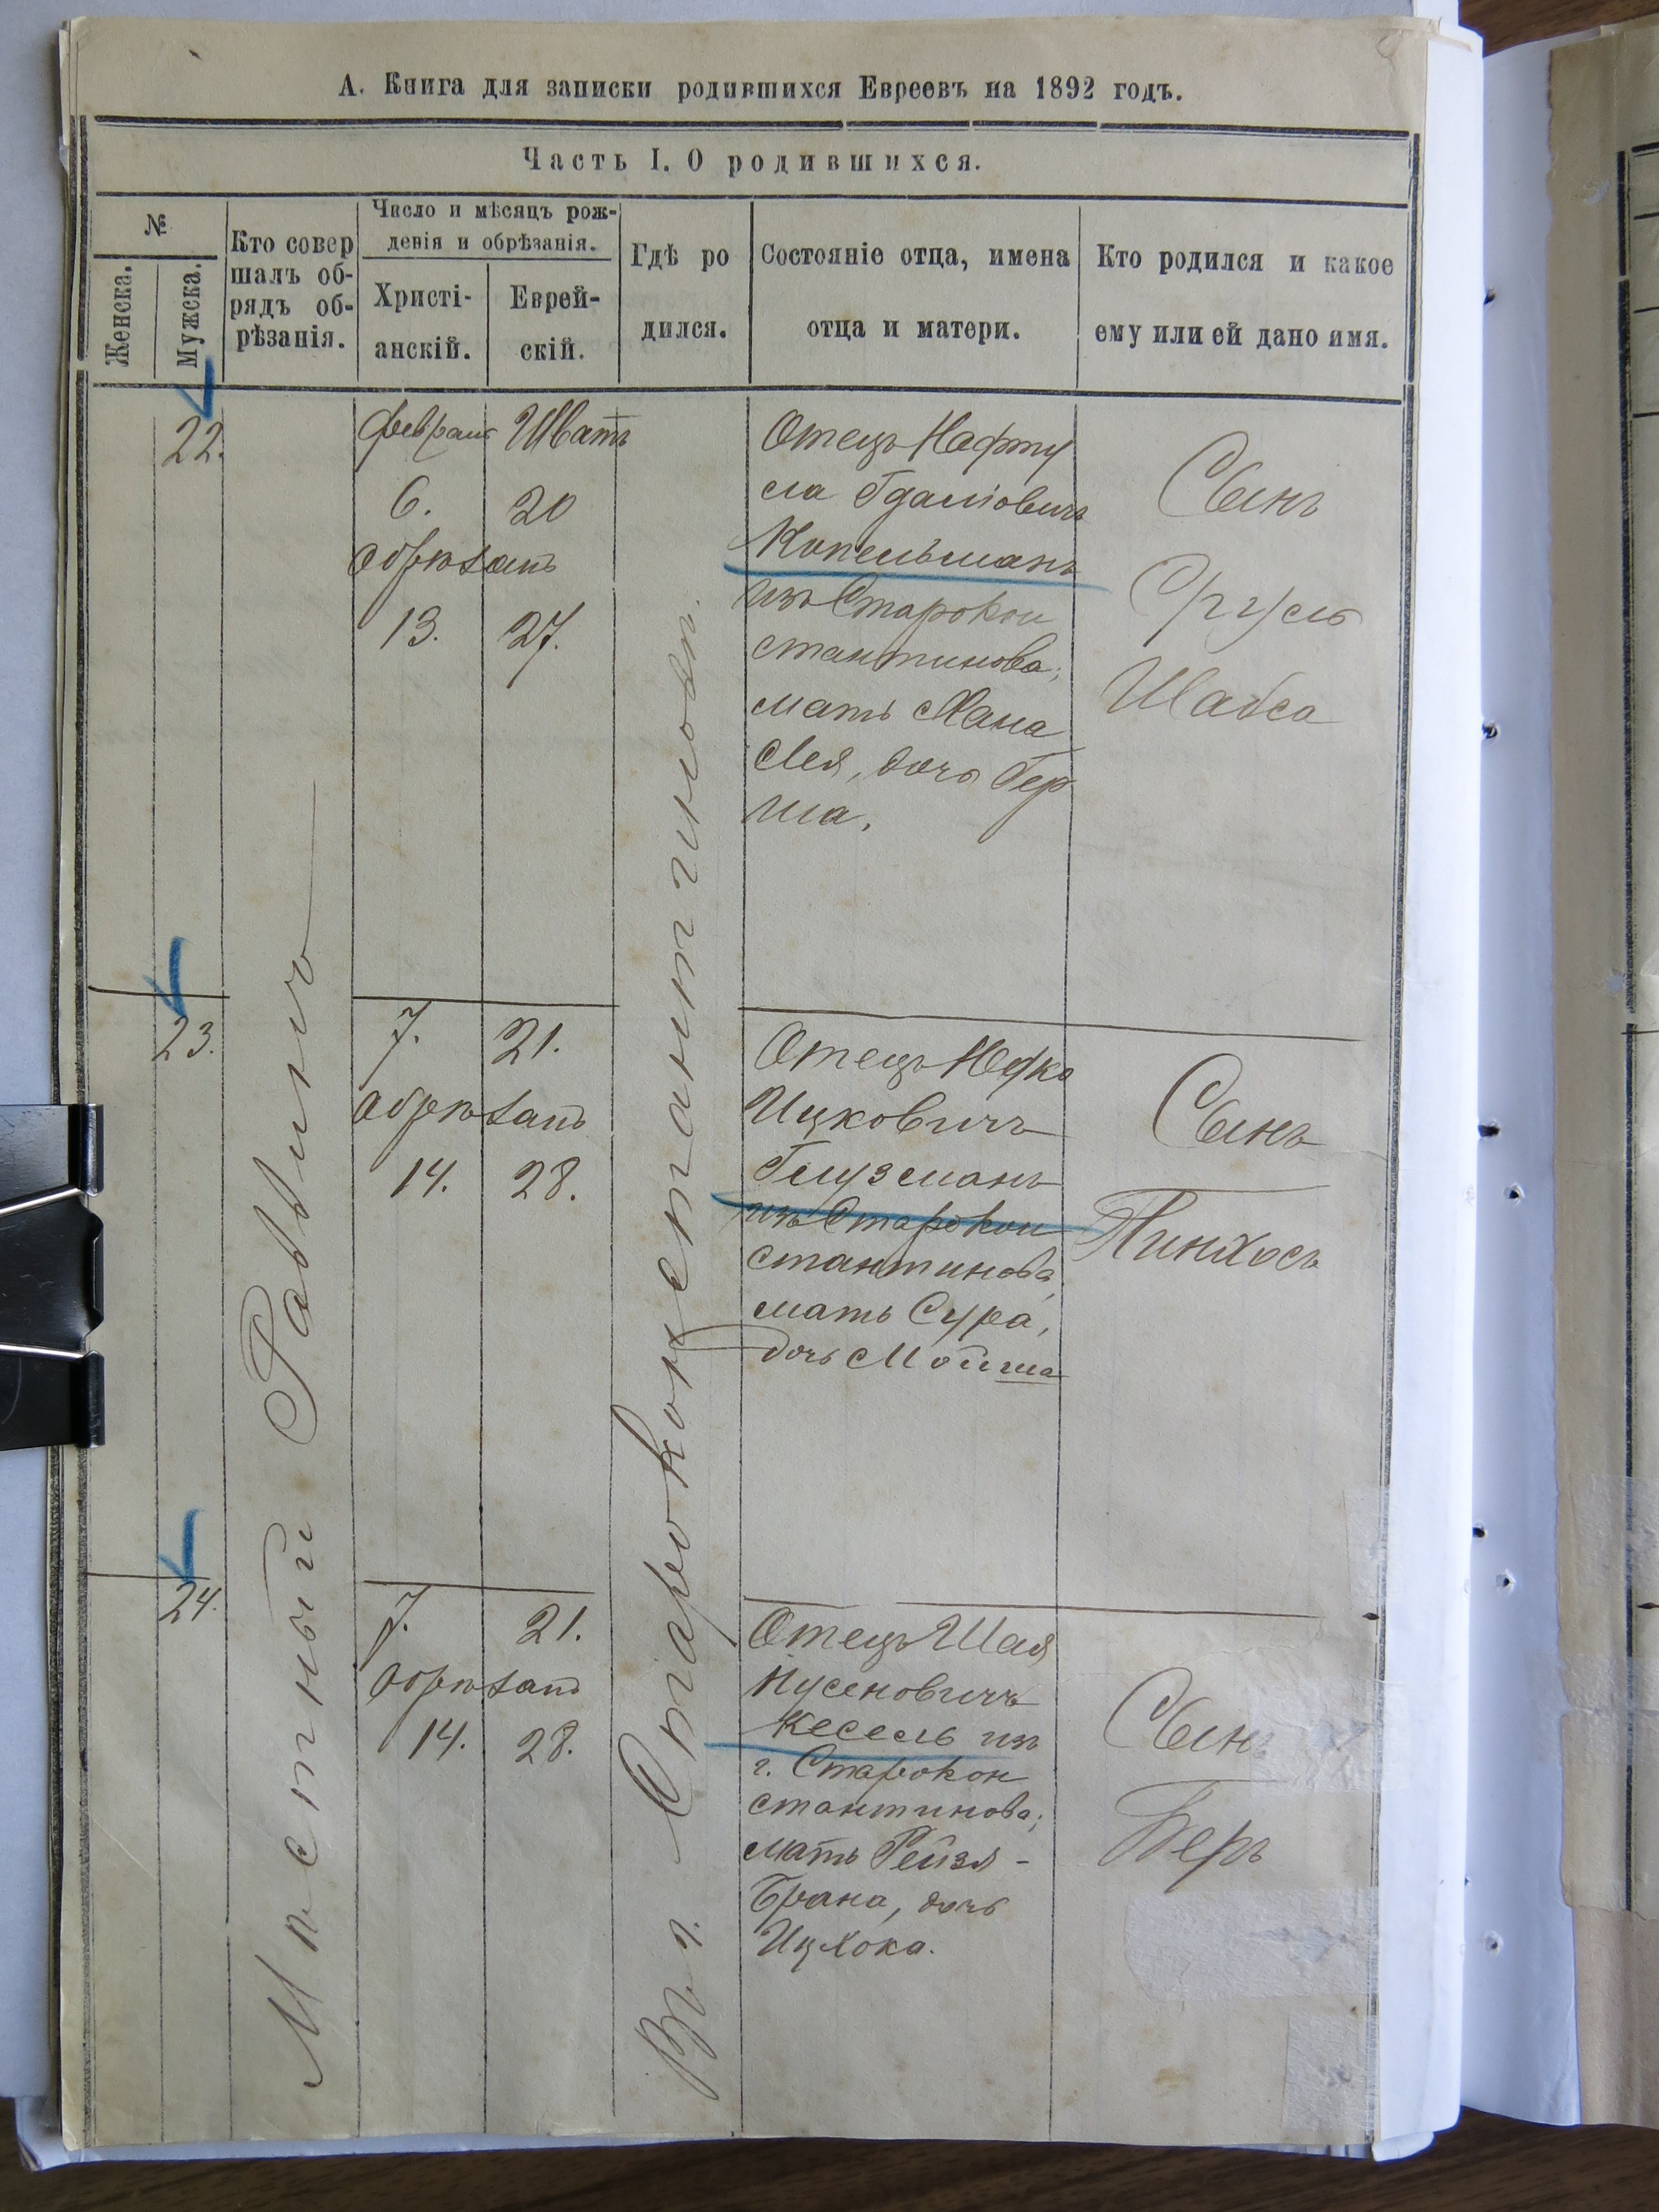 А. Книга для записки родившихся Евреевъ на 1892 годъ.
Часть I. О родившихся.
№
Женска.
Мужска.
Кто совер
шалъ об-
рядъ об-
рѣзанія.
Число и мѣсяцъ рож-
денія и обрѣзанія.
Христі-
анскій.
Еврей-
скій.
Гдѣ ро
дился.
Состояніе отца, имена
отца и матери.
Кто родился и какое
ему или ей дано имя.
Мѣстный Раввинъ
Въ г. Староконстантиновѣ.
22.
февраля Шватъ
6. 20
обрѣзанъ
13. 27.
Отецъ Нафту
ла Гдаліовичъ
Копельманъ
изъ Старокон
стантинова;
мать Хана
Лея, дочь Гер
ша.
Сынъ
Сруль
Шабса
23.
7. 21.
обрѣзанъ
14. 28.
Отецъ
Ицковичъ
Глузманъ
изъ Старокон
стантинова,
мать Сура,
дочь Мойша
Сынъ
Пинхосъ
24.
7. 21.
обрѣзанъ
14. 28.
Отецъ Шая
Нусеновичъ
Кесель изъ
г. Старокон
стантинова;
мать Рейзя-
Брана, дочь
Ицхока.
Сынъ
Беръ